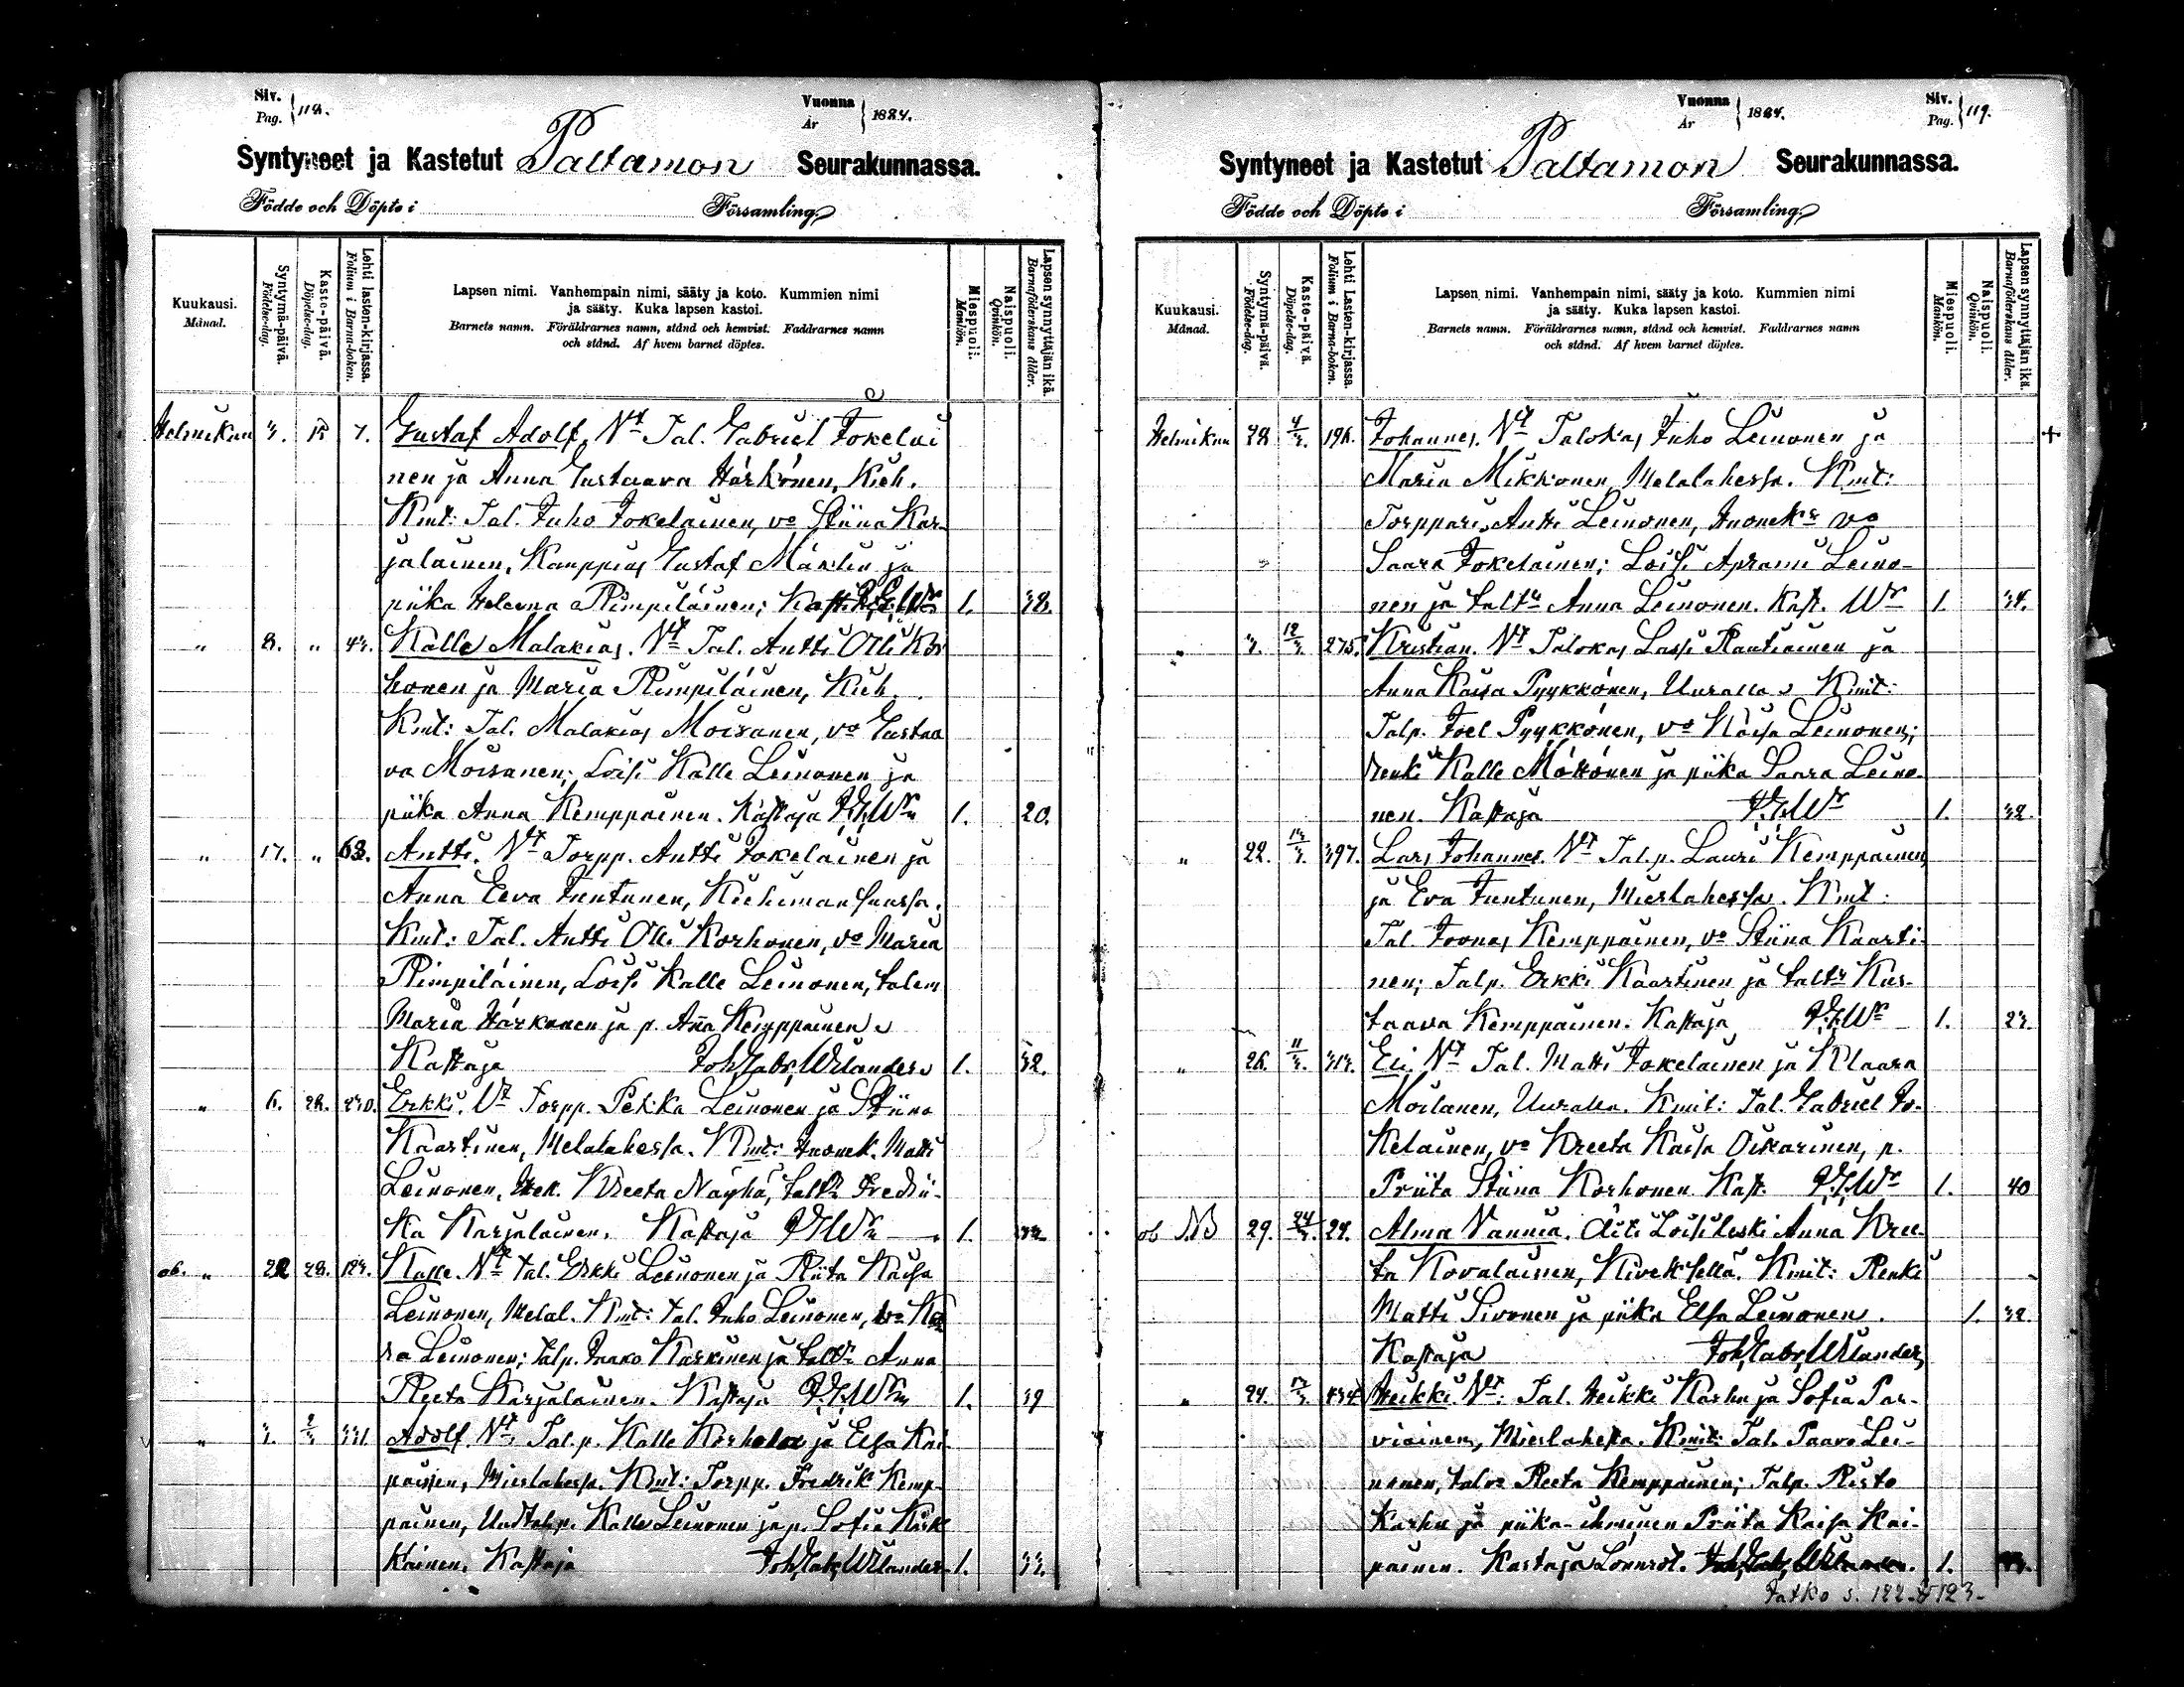 Siv.
Pag. 118.
Vuonna
År 1884.
Syntyneet ja Kastetut Paltamon Seurakunnassa.
Födde och Döpte i Församling.
Kuukausi.
Månad.
Syntymä-päivä.
Födelse-dag.
Kaste-päivä.
Döpelse-dag.
Lehti lasten-kirjassa.
Folium i Barna-boken.
Lapsen nimi. Vanhempain nimi, sääty ja koto. Kummien nimi
ja sääty. Kuka lapsen kastoi.
Barnets namn. Föräldrarnes namn, stånd och hemvist. Faddrarnes namn
och stånd. Af hvem barnet döptes.
Miespuoli.
Mankön.
Naispuoli.
Qvinkön.
Lapsen synnyttäjän ikä.
Barnaföderskans ålder.
Helmikuu 3. 7. Gustaf Adolf, Vt Tal. Gabriel Jokelai
nen ja Anna Gustaava Härkönen, Kieh.
Kmt: Tal. Juho Jokelainen, vo Stiina Kar-
jalainen, Kauppias Gustaf Märlin ja
piika Helena Rimpiläinen; Kast. 1. 38.
" 8. " 43. Kalle Malakias. Vt Tal. Antti Olli Kor
honen ja Maria Rimpiläinen, Kieh.
Kmt: Tal. Malakias Moisanen, vo Gustaa
va Moisanen; Lois Kalle Leinonen ja
piika Anna Kemppainen. Kastaja 1. 20.
" 17. " 63. Antti. Vt Torpp. Antti Jokeläinen ja
Anna Eeva Juntunen, Kiehimän suussa.
Kmt: Tal. Antti Olli Korhonen, vo Maria
Rimpiläinen, Lois Kalle Leinonen, talem
Maria Härkönen ja p. Anna Kemppainen
Kastaja Joh. Gabr. Wilander 1. 32.
" 6. 28. 230. Erkki. Vt Torpp. Pekka Leinonen ja Stiina
Kaartinen, Melalahessa. Kmt: Huonek. Matti
Leinonen, Kreeta Näyhä, taltr Fredrii-
ka Karjalainen. Kastaja 1.
ob. " 22 28. 123. Kalle. Vt Tal. Erkki Leinonen ja Riita Kaisa
Leinonen, Melal. Kmt: tal. Juho Leinonen, vo
ra Leinonen; Talp. Jaako Karkinen ja taltr Anna
Reeta Karjalainen. Kastaja 1. 39
" 3. 2/3 331. Adolf. Vt Tal.p. Kalle Korhola ja Elsa Kai
painen, Mieslahessa. Kmt: Torpp. Fredrik Kemp-
painen, Uudtalp. Kalle Leinonen ja p. Sofia Kark
kainen. Kastaja Joh. Gabr. Wilander 1. 33.
Vuonna
År 1884.
Siv.
Pag. 119.
Syntyneet ja Kastetut Paltamon Seurakunnassa.
Födde och Döpte i Församling.
Kuukausi.
Månad.
Syntymä-päivä.
Födelse-dag.
Kaste-päivä.
Döpelse-dag.
Lehti Lasten-kirjassa.
Folium i Barna-boken.
Lapsen nimi. Vanhempain nimi, sääty ja koto. Kummien nimi
ja sääty. Kuka lapsen kastoi.
Barnets namn. Föräldrarnes namn, stånd och hemvist. Faddrarnes namn
och stånd. Af hvem barnet döptes.
Miespuoli.
Mankön.
Naispuoli.
Qvinkön.
Lapsen synnyttäjän ikä.
Barnaföderskans ålder.
Helmikuu 28 4/3. 196. Johannes. Vt Talokas Juho Leinonen ja +
Maria Mikkonen, Melalahessa. Kmt:
Torppari Antti Leinonen, Huonekr vo
Saara Jokelainen; Lois Aprami Leino-
nen ja taltr Anna Leinonen. Kast. Wr 1. 34.
" 3. 12/3. 275. Kristian. Vt Talokas Lassi Rautiainen ja
Anna Kaisa Pyykkönen, Uuralla. Kmt:
Talp. Joel Pyykkönen, vo Kaisa Leinonen;
renki Kalle Möttönen ja piika Saara Leino-
nen. Kastaja 1. 32.
" 22. 397. Lars Johannes. Vt Tal.p. Lauri Kemppainen
ja Eva Juntunen, Mieslahessa. Kmt:
Tal Joonas Kemppainen, vo Stiina Kaarti-
nen; Talp. Erkki Kaartinen ja taltr Kus-
taava Kemppainen. Kastaja 1. 23.
" 26. 11/3. 313. Eli. Vt Tal. Matti Jokelainen ja Klaara
Moilanen, Uuralla. Kmit: Tal. Gabriel Jo-
kelainen, vo Kreeta Kaisa Oikarinen, p.
Priita Stiina Korhonen. Kast. 1. 40
ob NB 29. 24/3. 24. Alma Vannia. Äiti Lois leski Anna Kree-
ta Kovalainen, Kiveksellä. Kmit: Renki
Matti Sivonen ja piika Elsa Leinonen. 1. 32.
Kastaja Joh. Gabr. Wilander
" 24. 434 Heikki. Vt: Tal. Heikki Karhu ja Sofia Par-
viainen, Mieslahessa. Kmit: Tal. Paavo Lei-
nonen, talvo Reeta Kemppainen; Talp. Risto
Karhu ja piika-ihminen Priita Kaisa Kai-
painen. Kastaja Lönnrot. 1.
Jatko s. 122 & 123.